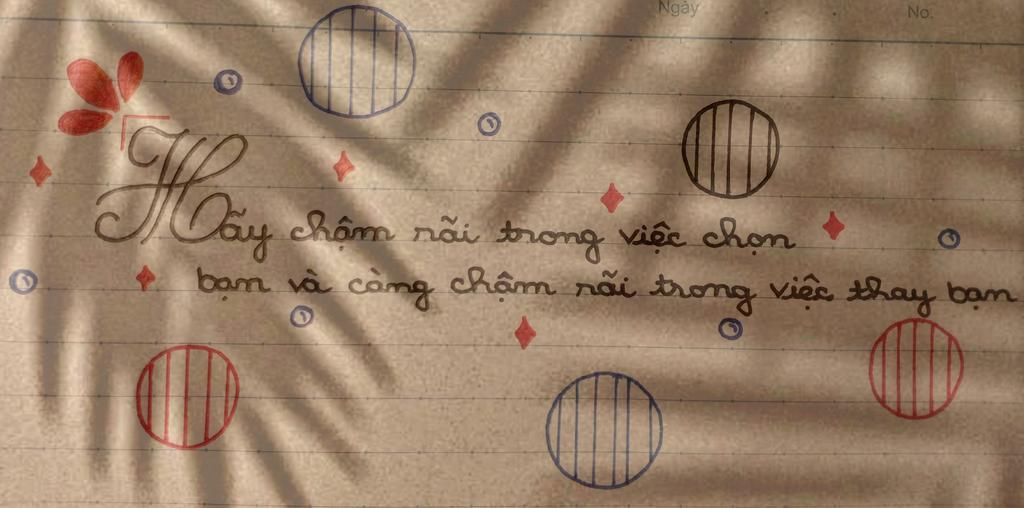 Ngày No.
Hãy chậm rãi trong việc chọn
bạn và càng chậm rãi trong việc thay bạn